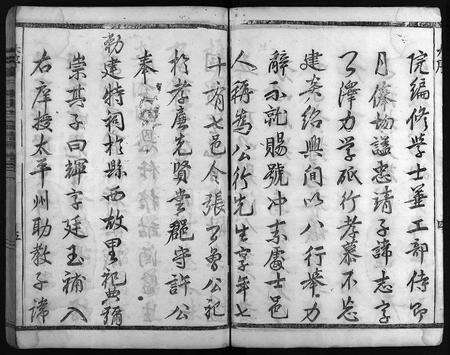 院編修學士並工部侍郎
月俸初謚忠靖子諱志字
公澤力学砥行孝慕不忘
建炎紹興間以八行舉力
辭不就賜號冲素處士邑
人稱為公行先生享年七
十有七邑令張公曾公祀
於孝廉先賢堂郡守許公
奉
勅建特祠於縣西故里祀典彌
崇其子曰輝字廷玉補入
右庠授太平州助教子諱